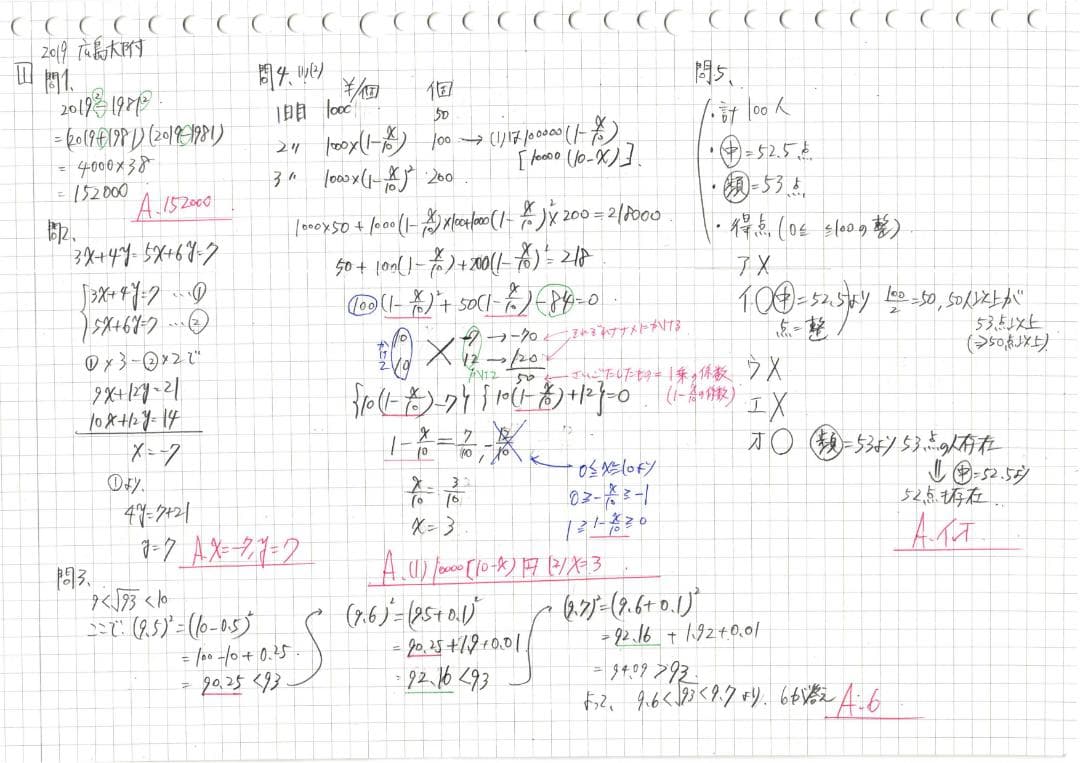 2019 広島大附
1
問1、
2019²-1981²
=(2019+1981)(2019-1981)
=4000×38
=152000
A.152000
問2、
3x+4y=5x+6y=7
{3x+4y=7 …①
5x+6y=7 …②
①×3-②×2で
9x+12y=21
10x+12y=14
x=-7
①より、
4y=7+21
y=7
A.x=-7,y=7
問3、
9<√93<10
ここで(9.5)²=(10-0.5)²
=100-10+0.25
=90.25<93
(9.6)²=(9.5+0.1)²
=90.25+1.9+0.01
=92.16<93
(9.7)²=(9.6+0.1)²
=92.16+1.92+0.01
=94.09>93
よって、9.6<√93<9.7より、6が答え
A.6
問4、(1)(2)
¥/個 個
1日目 1000 50
2〃 1000×(1-x/10) 100→(1)は100000(1-x/10)
[10000(10-x)].
3〃 1000×(1-x/10)² 200
1000×50+1000(1-x/10)×100+1000(1-x/10)²×200=218000
50+100(1-x/10)+200(1-x/10)²=218
100(1-x/10)²+50(1-x/10)-84=0
かけて
10 -7→-70
10 12→120
50
かけて
それぞれナナメにかける
さいごたしたもの=1乗の係数
(1-x/10の係数)
{10(1-x/10)-7}{10(1-x/10)+12}=0
1-x/10=7/10,-12/10
0≦x≦10より
0≧-x/10≧-1
1≧1-x/10≧0
x/10=3/10
x=3
A.(1)10000(10-x)円 (2)x=3
問5、
・計100人
・中=52.5点
・頻=53点
・得点(0≦ ≦100の整)
ア×
イ○ 中=52.5より 100/2=50,50人以上が
点=整
53点以上
(≧50点以上)
ウ×
エ×
オ○ 頻=53より53点の人存在
⇓中=52.5より
52点も存在
A.イ,オ